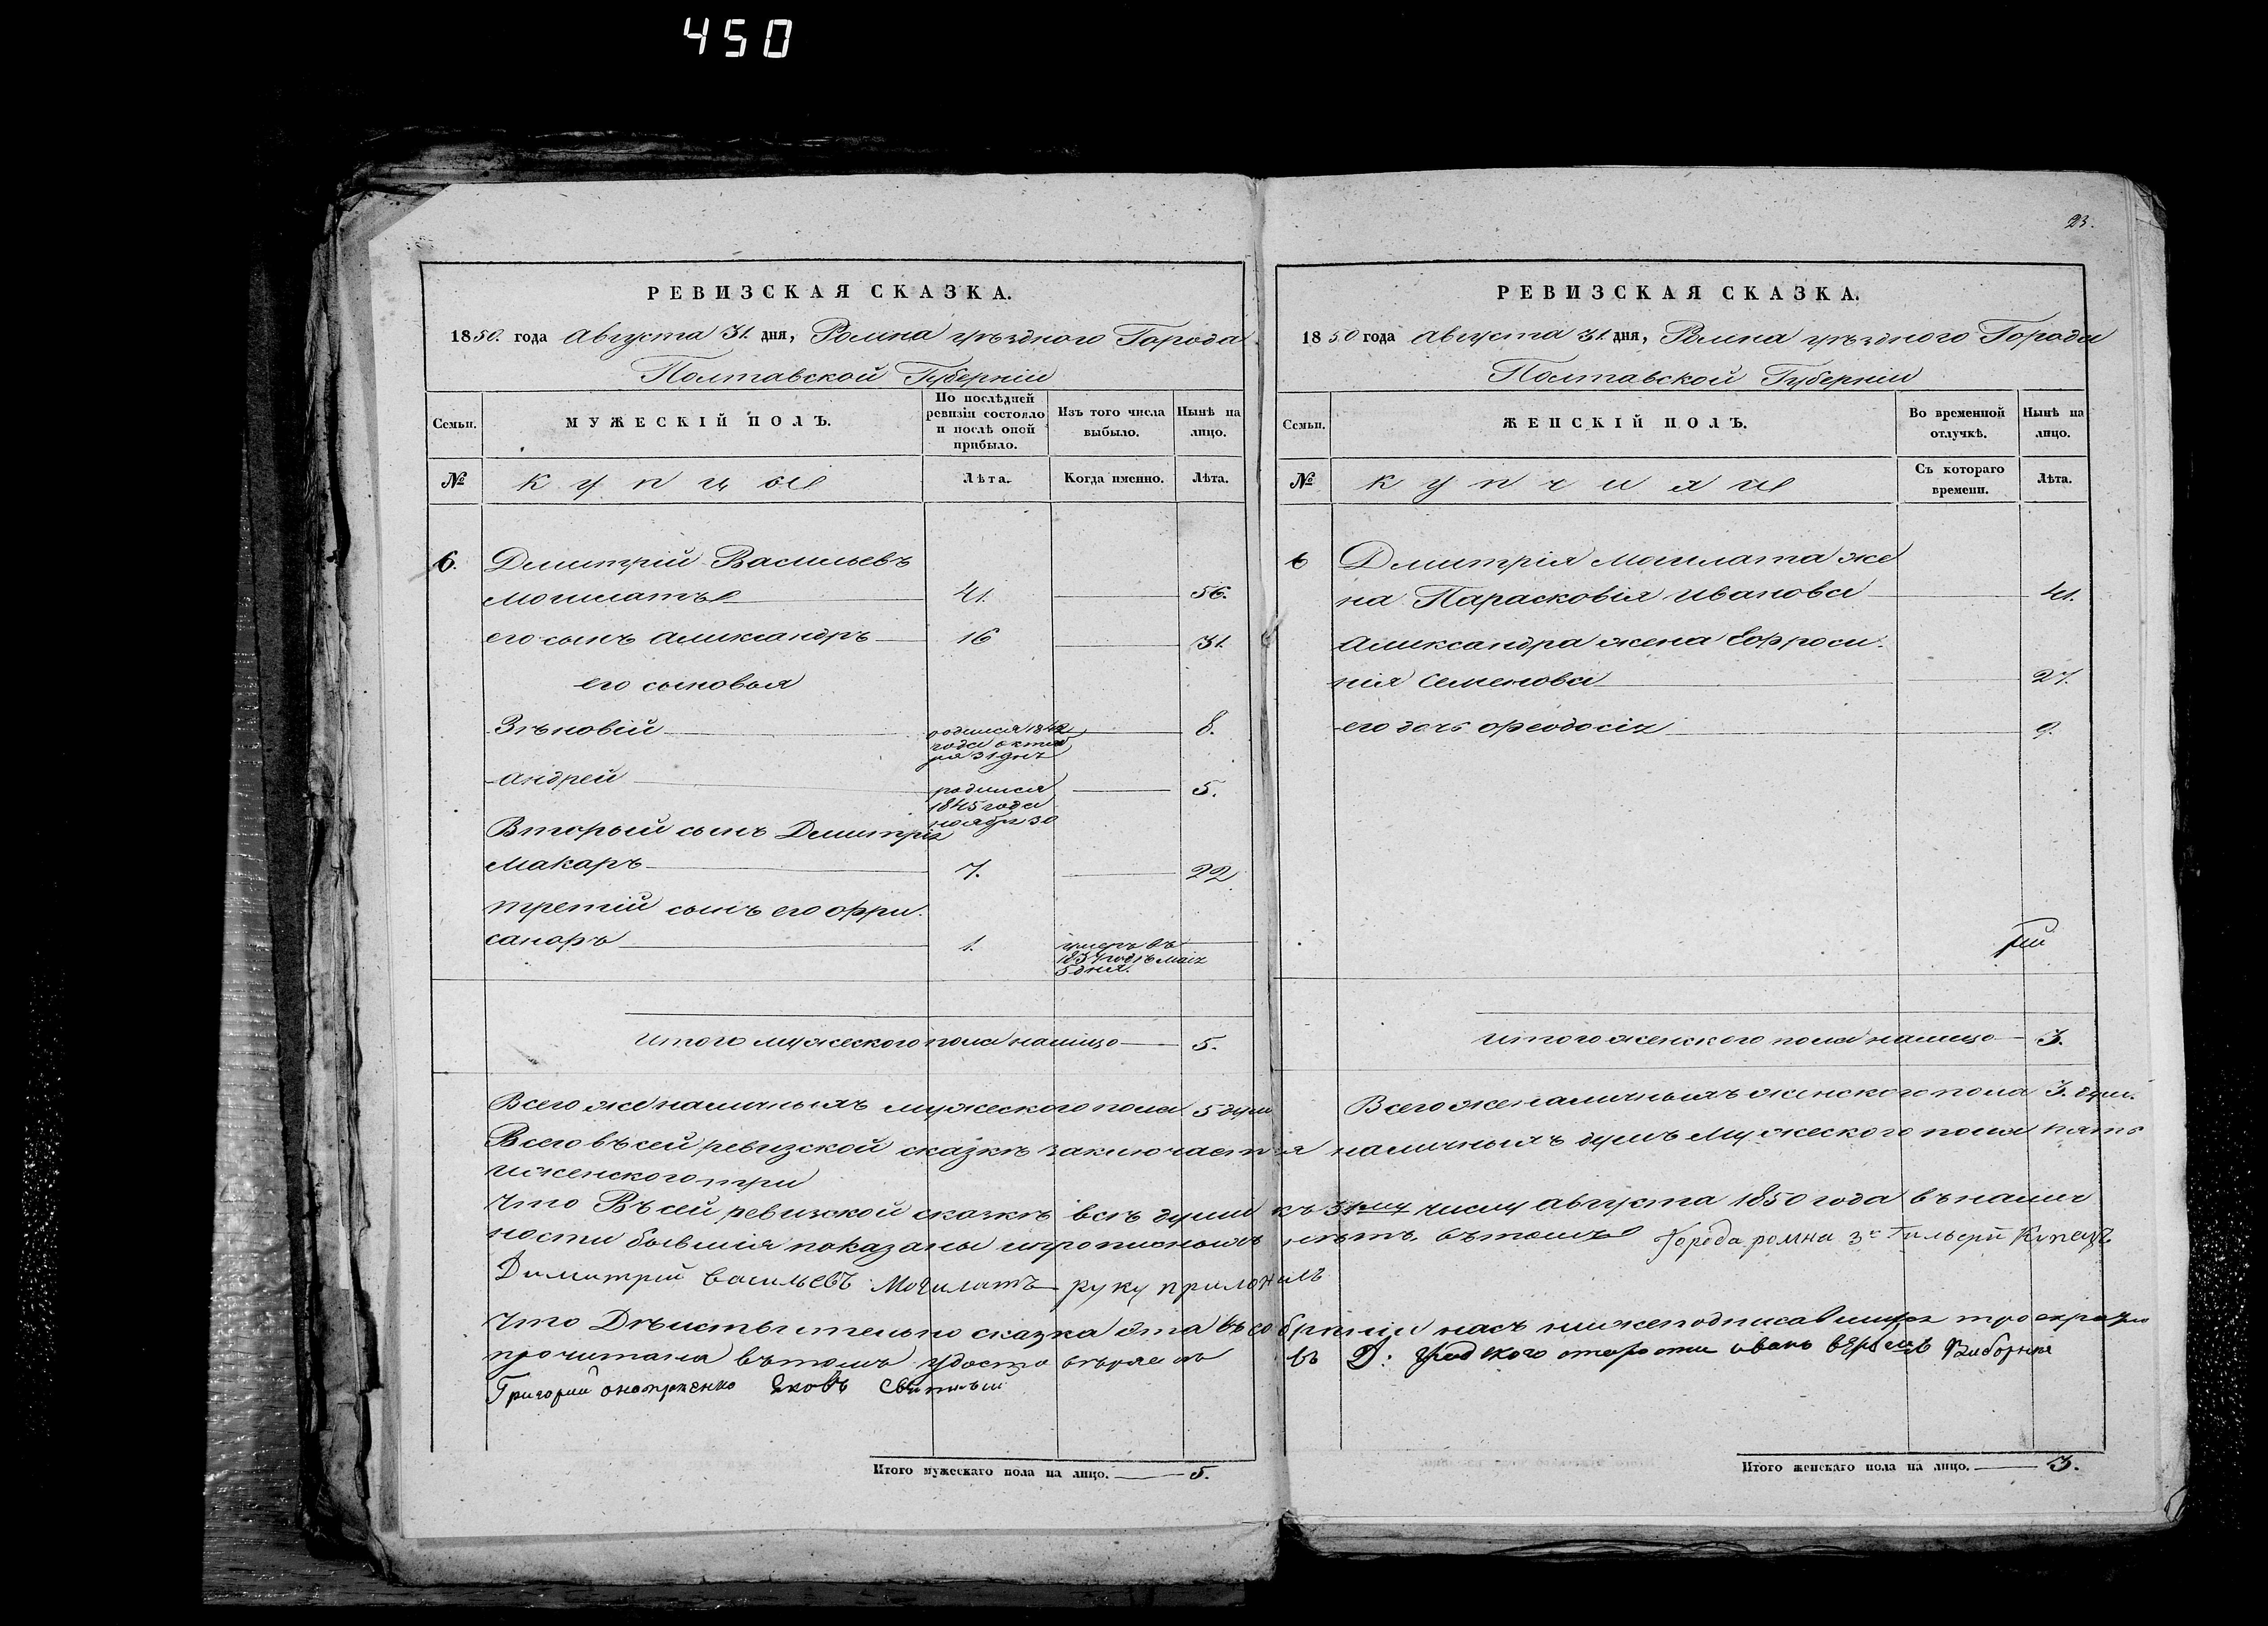 450
23.
РЕВИЗСКАЯ СКАЗКА.
1850. года Августа 31. дня, Ромна уѣзднаго Города
Полтавской Губерніи
Семьи.
МУЖЕСКІЙ ПОЛЪ.
По послѣдней ревизіи состояло и послѣ оной прибыло.
Изъ того числа выбыло.
Нынѣ на лицо.
№
купцы
Лѣта.
Когда именно.
Лѣта.
6. Димитрій Васильевъ
Могилатъ 41. 56.
его сынъ Александръ 16 31.
его сыновья
Зѣновій родился 1842 8.
года октяб
ря 31 дня
Андрей родился 5.
1845 года
ноября 30
Вторый сынъ Димитрія
Макаръ 7. 22
третій сынъ его Фри
саноръ 1. умеръ въ
1837 годѣ маія
5 дня.
итого мужеского пола налицо 5.
Всего же наличныхъ мужеского пола 5 душ
РЕВИЗСКАЯ СКАЗКА.
1850 года Августа 31 дня, Ромна уѣзднаго Города
Полтавской Губерніи
Семьи.
ЖЕНСКІЙ ПОЛЪ.
Во временной отлучкѣ.
Нынѣ на лицо.
№
купчихи
Съ котораго времени.
Лѣта.
6 Дмитрія Могилата же
на Парасковія Иванова 41.
Александра жена Ефроси
нія Семенова 27.
его дочь Феодосія 9.
итого женского пола налицо 3.
Всего же наличныхъ женского пола 3. душ.
Всего въ сей ревизской сказкѣ заключается наличныхъ душъ мужеского пола пять
и женского три
Что Въ сей ревизской сказкѣ всѣ души къ 31му числу августа 1850 года въ налич
ности бывшія показаны и прописныхъ нѣтъ, въ томъ Города ромна 3й Гильдіи Купецъ
Димитрій васильевъ Могилатъ руку приложилъ
Что Дѣиствительно сказка ета въ собраніи насъ нижеподписавшихся троекратно
прочитана въ томъ удостовѣряемъ въ Д: градского старости иванъ Виборния
Григорий Яковъ
Итого мужескаго пола на лицо. 5.
Итого женскаго пола на лицо. 3.